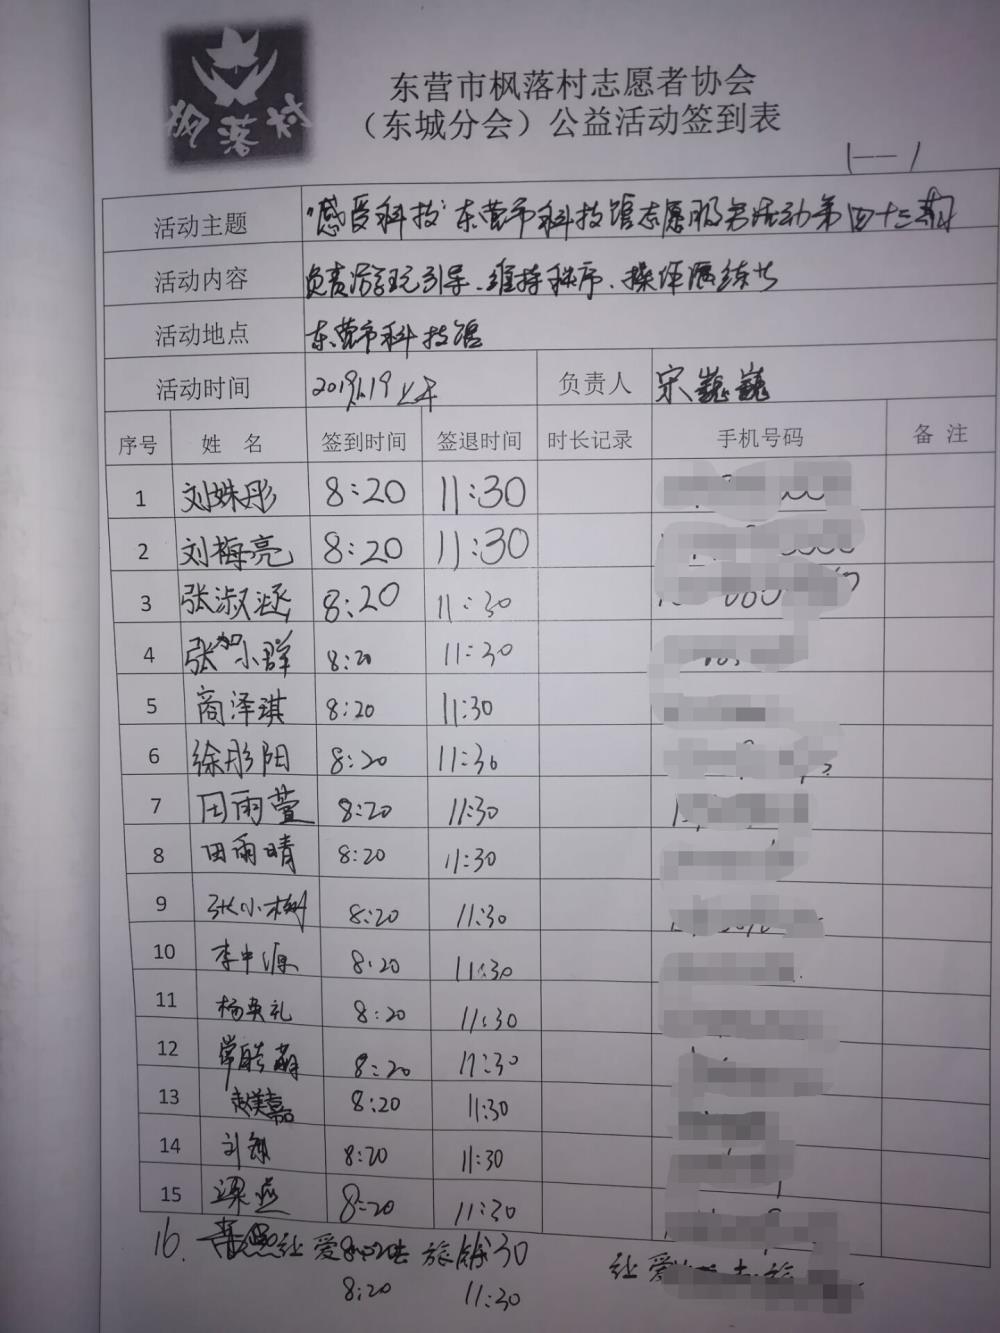 枫落村
东营市枫落村志愿者协会
（东城分会）公益活动签到表
1—1
活动主题 "感受科技"东营市科技馆志愿服务活动第四十三期
活动内容 负责游玩引导、维持秩序、操作演练等
活动地点 东营市科技馆
活动时间 2019.1.19上午 负责人 宋巍巍
序号 姓 名 签到时间 签退时间 时长记录 手机号码 备 注
1 刘姝彤 8:20 11:30
2 刘梅亮 8:20 11:30
3 张淑涵 8:20 11:30
4 张小群 8:20 11:30
5 商泽琪 8:20 11:30
6 徐彤阳 8:20 11:30
7 田雨萱 8:20 11:30
8 田雨晴 8:20 11:30
9 张小树 8:20 11:30
10 李中源 8:20 11:30
11 杨英礼 8:20 11:30
12 常皓萌 8:20 11:30
13 赵美嘉 8:20 11:30
14 刘 8:20 11:30
15 梁燕 8:20 11:30
16. 让爱 旅
让爱
8:20 11:30